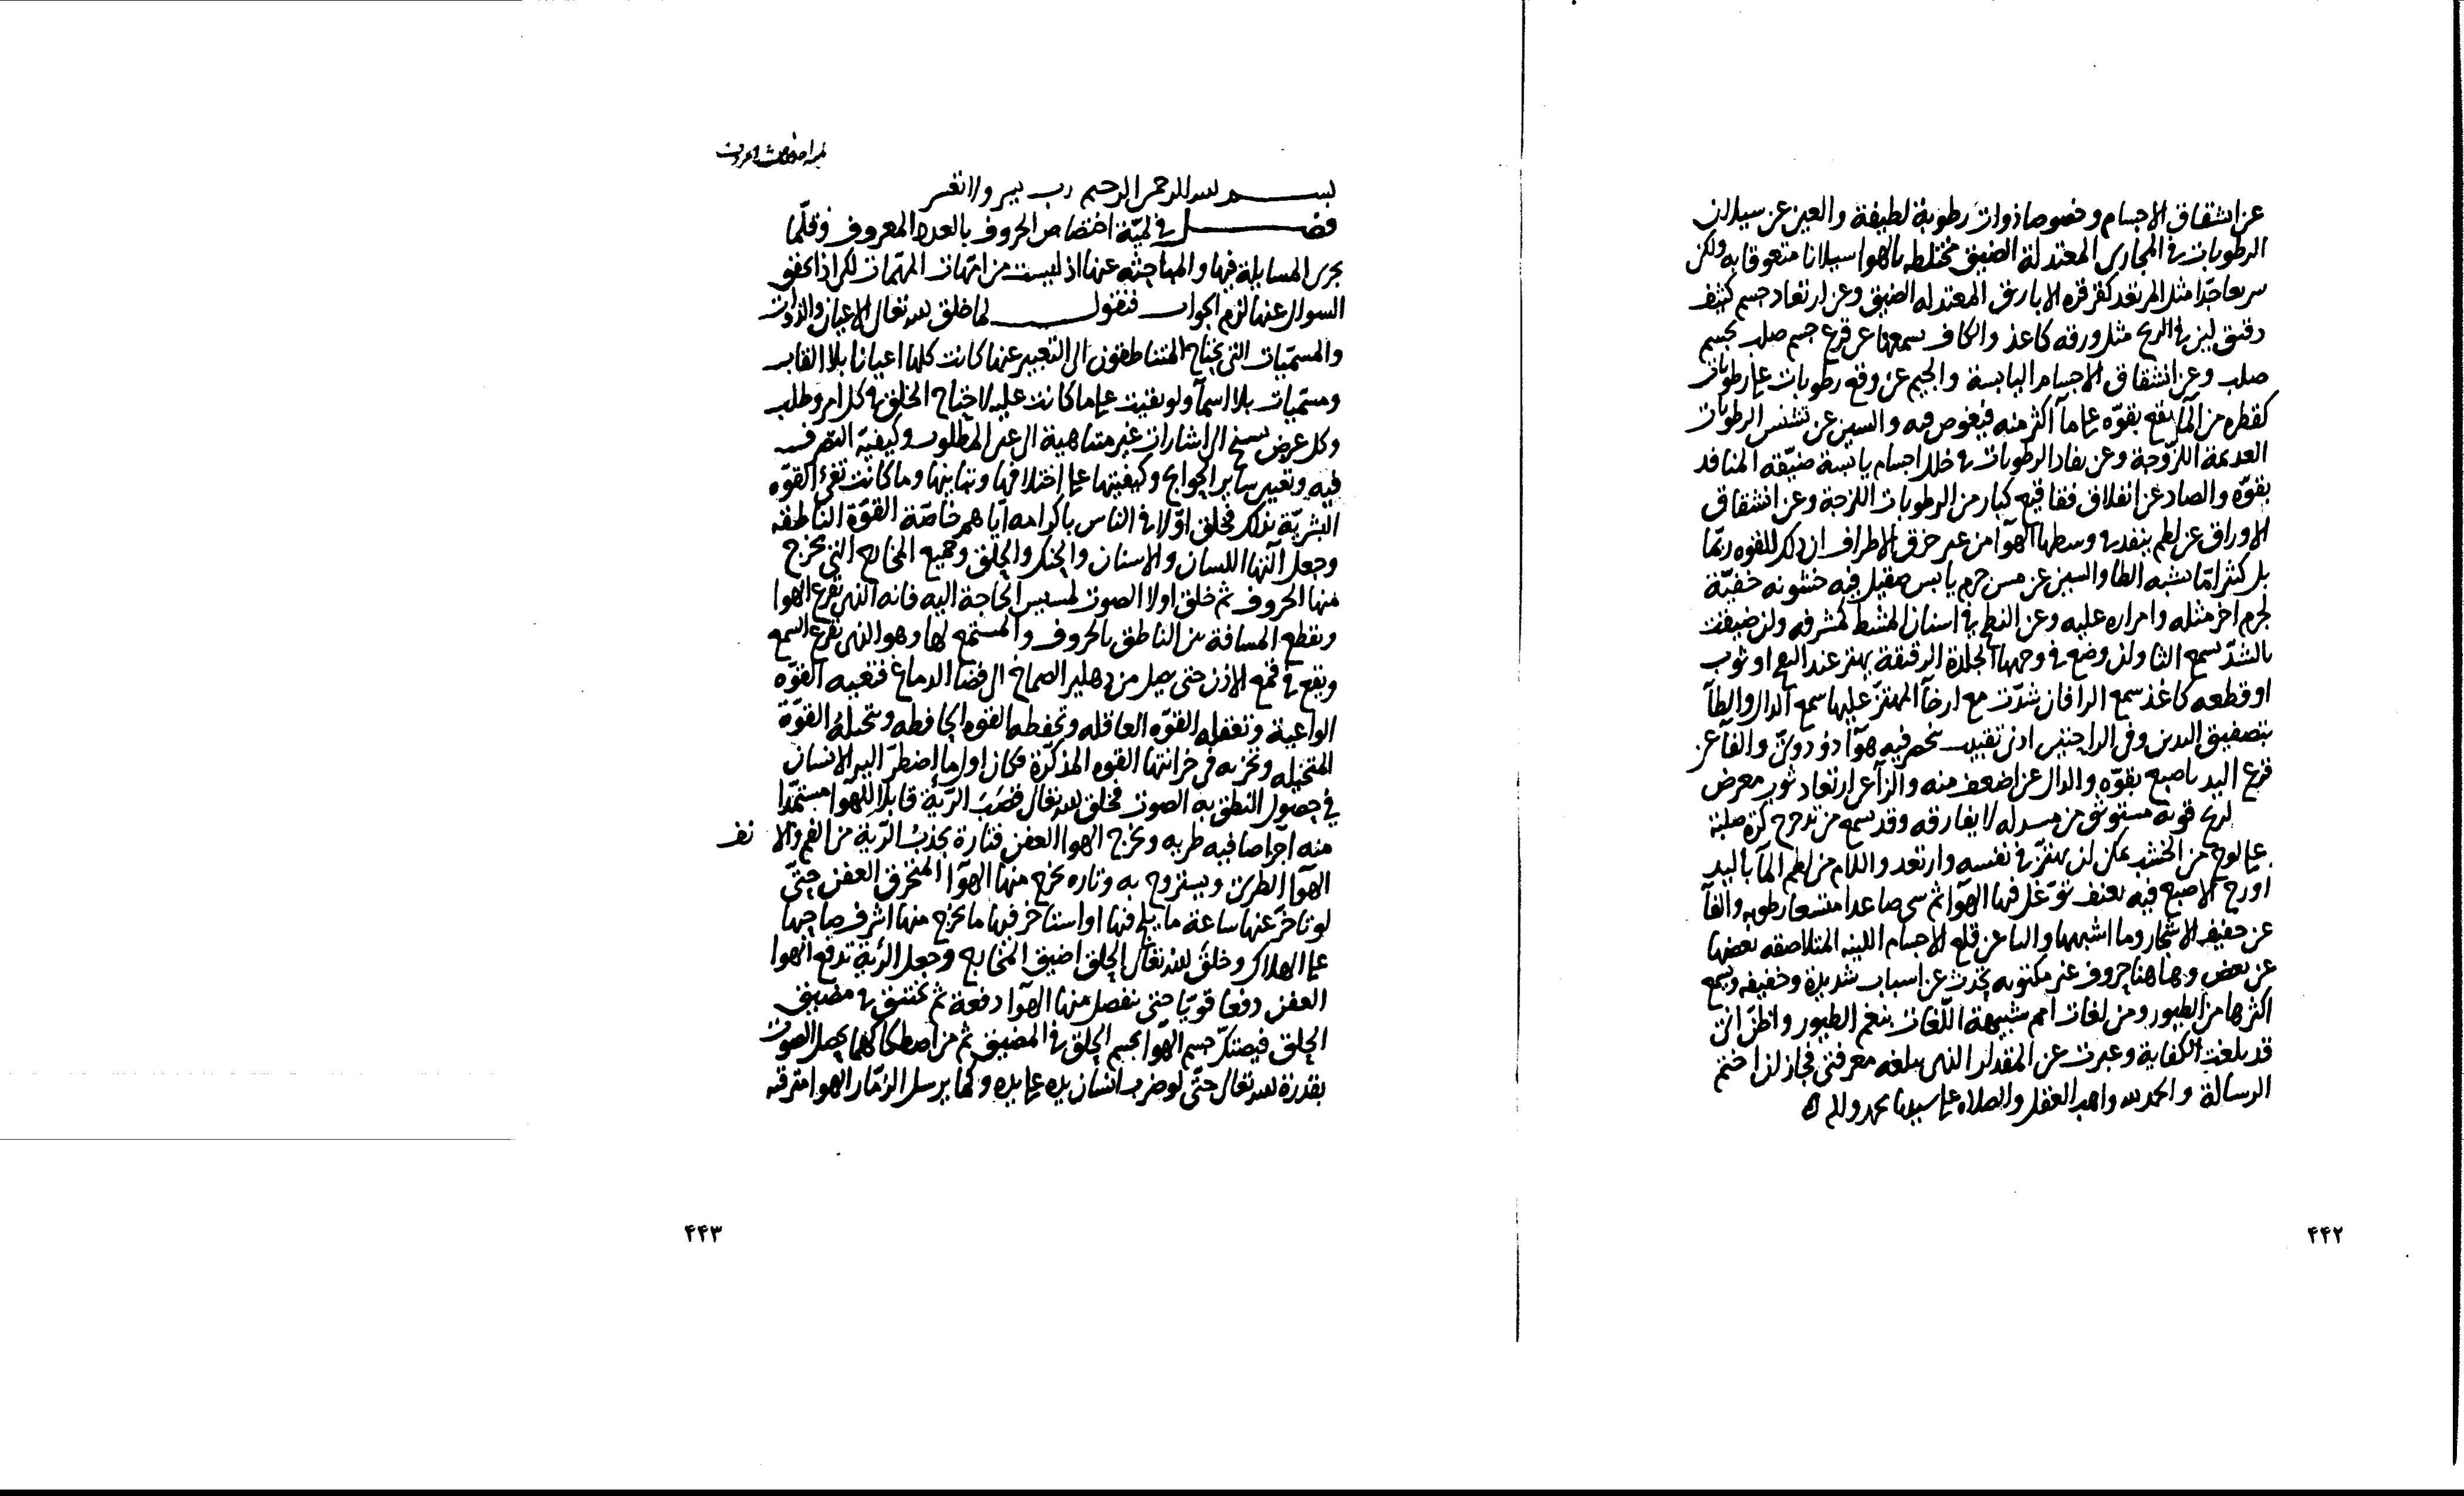 عن انشقاق الاجسام وخصوصا ذوات رطوبة لطيفة والعين عن سيلان
الرطوبات في المجاري المعتدلة الضيق مختلطه بالهوا سيلانا متعوقا به ولكن
سريعا جدا مثل المرتعد كقرقره الاباريق المعتدله الضيق وعن ارتعاد جسم كثيف
دقيق لين في الريح مثل ورقه كاغذ والكاف سمعها عن قرع جسم صلب بجسم
صلب وعن انشقاق الاجسام اليابسة والجيم عن وقع رطوبات على رطوبات
كقطره من المآ يقع بقوه على مآ اكثر منه فيغوص فيه والسين عن الرطوبات
العديمة اللزوجة وعن نفاد الرطوبات في خلل اجسام يابسة ضيقه المنافد
بقوه والصاد عن انفلاق فقاقيع كبار من الرطوبات اللزجة وعن انشقاق
الاوراق عن لطم ينفد في وسطها الهوآ من غير خرق الاطراف ان ذلك للقوه ربما
بل كثرا ما يشبه الطا والسين عن مس جرم يابس صقيل فيه خشونه خفية
لجرم اخر مثله وامراره عليه وعن في اسنان المشط كمشرفه ولن ضيقت
بالشد سمع الثا ولن وضع في وجهها الجلدة الرقيقة يهتز عند او ثوب
او قطعه كاغذ سمع الرا فان شدت مع ارخآ المهتز عليها سمع الدال والطآ
بتصفيق اليدين وفي الراحتين ادنى تقبيب ينحصر فيه هوآ ذو دوى والقآ عن
قرع اليد باصبع بقوه والدال عن اضعف منه والرآ عن ارتعاد ثوب معرض
لريح قويه مستوثق من لا يفارقه وقد يسمع من تدحرج كرة صلبة
على لوح من الخشب يمكن لن يهتز في نفسه وارتعد واللام من لطم المآ باليد
او زج الاصبع فيه بعنف فيها الهوآ ثم صاعدا رطوبه والفآ
عن حفيف الاشجار وما اشبهها والبا عن قلع الاجسام اللينه المتلاصقه بعضها
عن بعض وهاهنا حروف غير مكتوبه يحدث عن اسباب شديدة وخفيفه ويسمع
اكثرها من الطيور ومن لغات امم شبيهة اللغات بنغم الطيور واظن انى
قد بلغت الكفاية وعبرت عن المقدار الذى يبلغه معرفتى فجاز لن اختم
الرسالة والحمد لله واهب العقل والصلاه على سيدنا محمد واله
۴۴۲
بسم الله الرحمن الرحيم رب يسر ولا تعسر
فصل في لمية اختصاص الحروف بالعدد المعروف وقلما
يجرى المسايلة فيها والمباحثه عنها اذ ليست من المهمات لكن اذا
السوال عنها لزم الجواب فنقول لما خلق الله تعالى الاعيان والذوات
والمسميات التي يحتاج المتناطقون الى التعبير عنها كانت كلها اعيانا بلا القاب
ومسميات بلا اسمآ ولو بقيت على ما كانت عليه لاحتاج الخلق في كل امر وطلب
وكل غرض الى اشارات غير متناهية الى عين المطلوب وكيفية التصرف
فيه وتعبير ساير الحوايج وكيفيتها على اختلافها وتباينها وما كانت تفى القوه
البشرية بذلك فخلق اولا في الناس باكرامه اياهم خاصة القوة الناطقه
وجعل آلتها اللسان والاسنان والحنك والحلق وجميع المخارج التى يخرج
منها الحروف ثم خلق اولا الصوت لمسيس الحاجة اليه فانه الذى يقرع الهوا
ويقطع المسافة بين الناطق بالحروف والمستمع لها وهو الذى يقرع السمع
ويقع في قمع الاذن حتى يصل من دهليز الصماخ الى فضا الدماغ فتعيه القوه
الواعية وتعقله القوه العاقله وتحفظه القوه الحافظه وتتخيله القوة
المتخيله وتخزنه في خزانتها القوه المذكرة فكان اول ما اضطر اليه الانسان
في حصول النطق به الصوت فخلق الله تعالى قصب الرئة قابلا للهوآ مستمدا
منه اجزا صافيه طريه وتخرج الهوا العفن فتارة يجذب الرئة من الفم والانف
الهوآ الطرى ويستروح به وتاره يخرج منها الهوآ المحترق العفن حتى
لو تاخر عنها ساعة ما يلج فيها او استاخر فيها ما يخرج منها اشرف صاحبها
على الهلاك وخلق الله تعالى الحلق اضيق المخارج وجعل الرئة تدفع الهوا
العفن دفعا قويا حتى ينفصل منها الهوآ دفعة ثم يختنق في مضيق
الحلق فيصتك جسم الهوآ بجسم الحلق في المضيق ثم من اصطكاكهما يحصل الصوت
بقدرة الله تعالى حتى لو ضرب انسان يده على يده وكما يرسل الزمار الهوا من فيه
۴۴۳